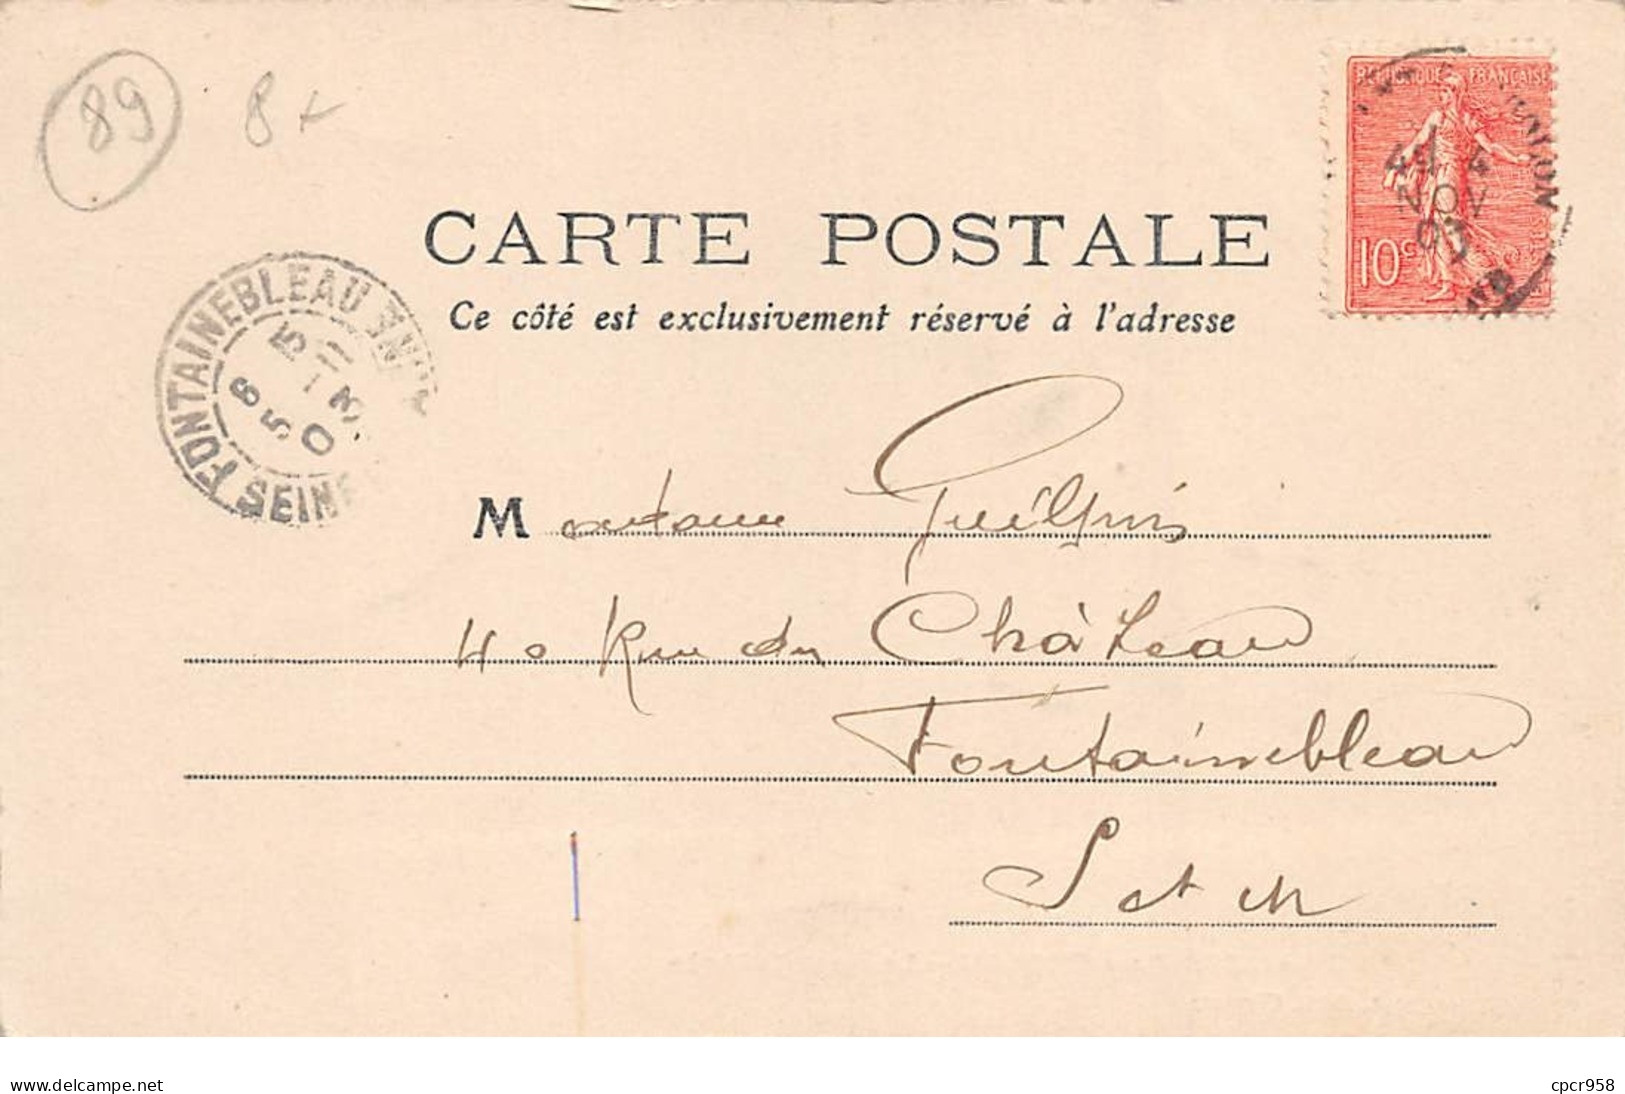 89 8+
REPUBLIQUE FRANÇAISE
4
NOV
03
10c
CARTE POSTALE
Ce côté est exclusivement réservé à l'adresse
FONTAINEBLEAU
6 50
15 11
03
SEINE
Madame
40 Rue du Château
Fontainebleau
S et M
www.delcampe.net
cpcr958